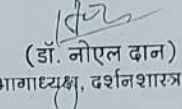 (डॉ. नोएल दान)
भागाध्यक्ष, दर्शनशास्त्र